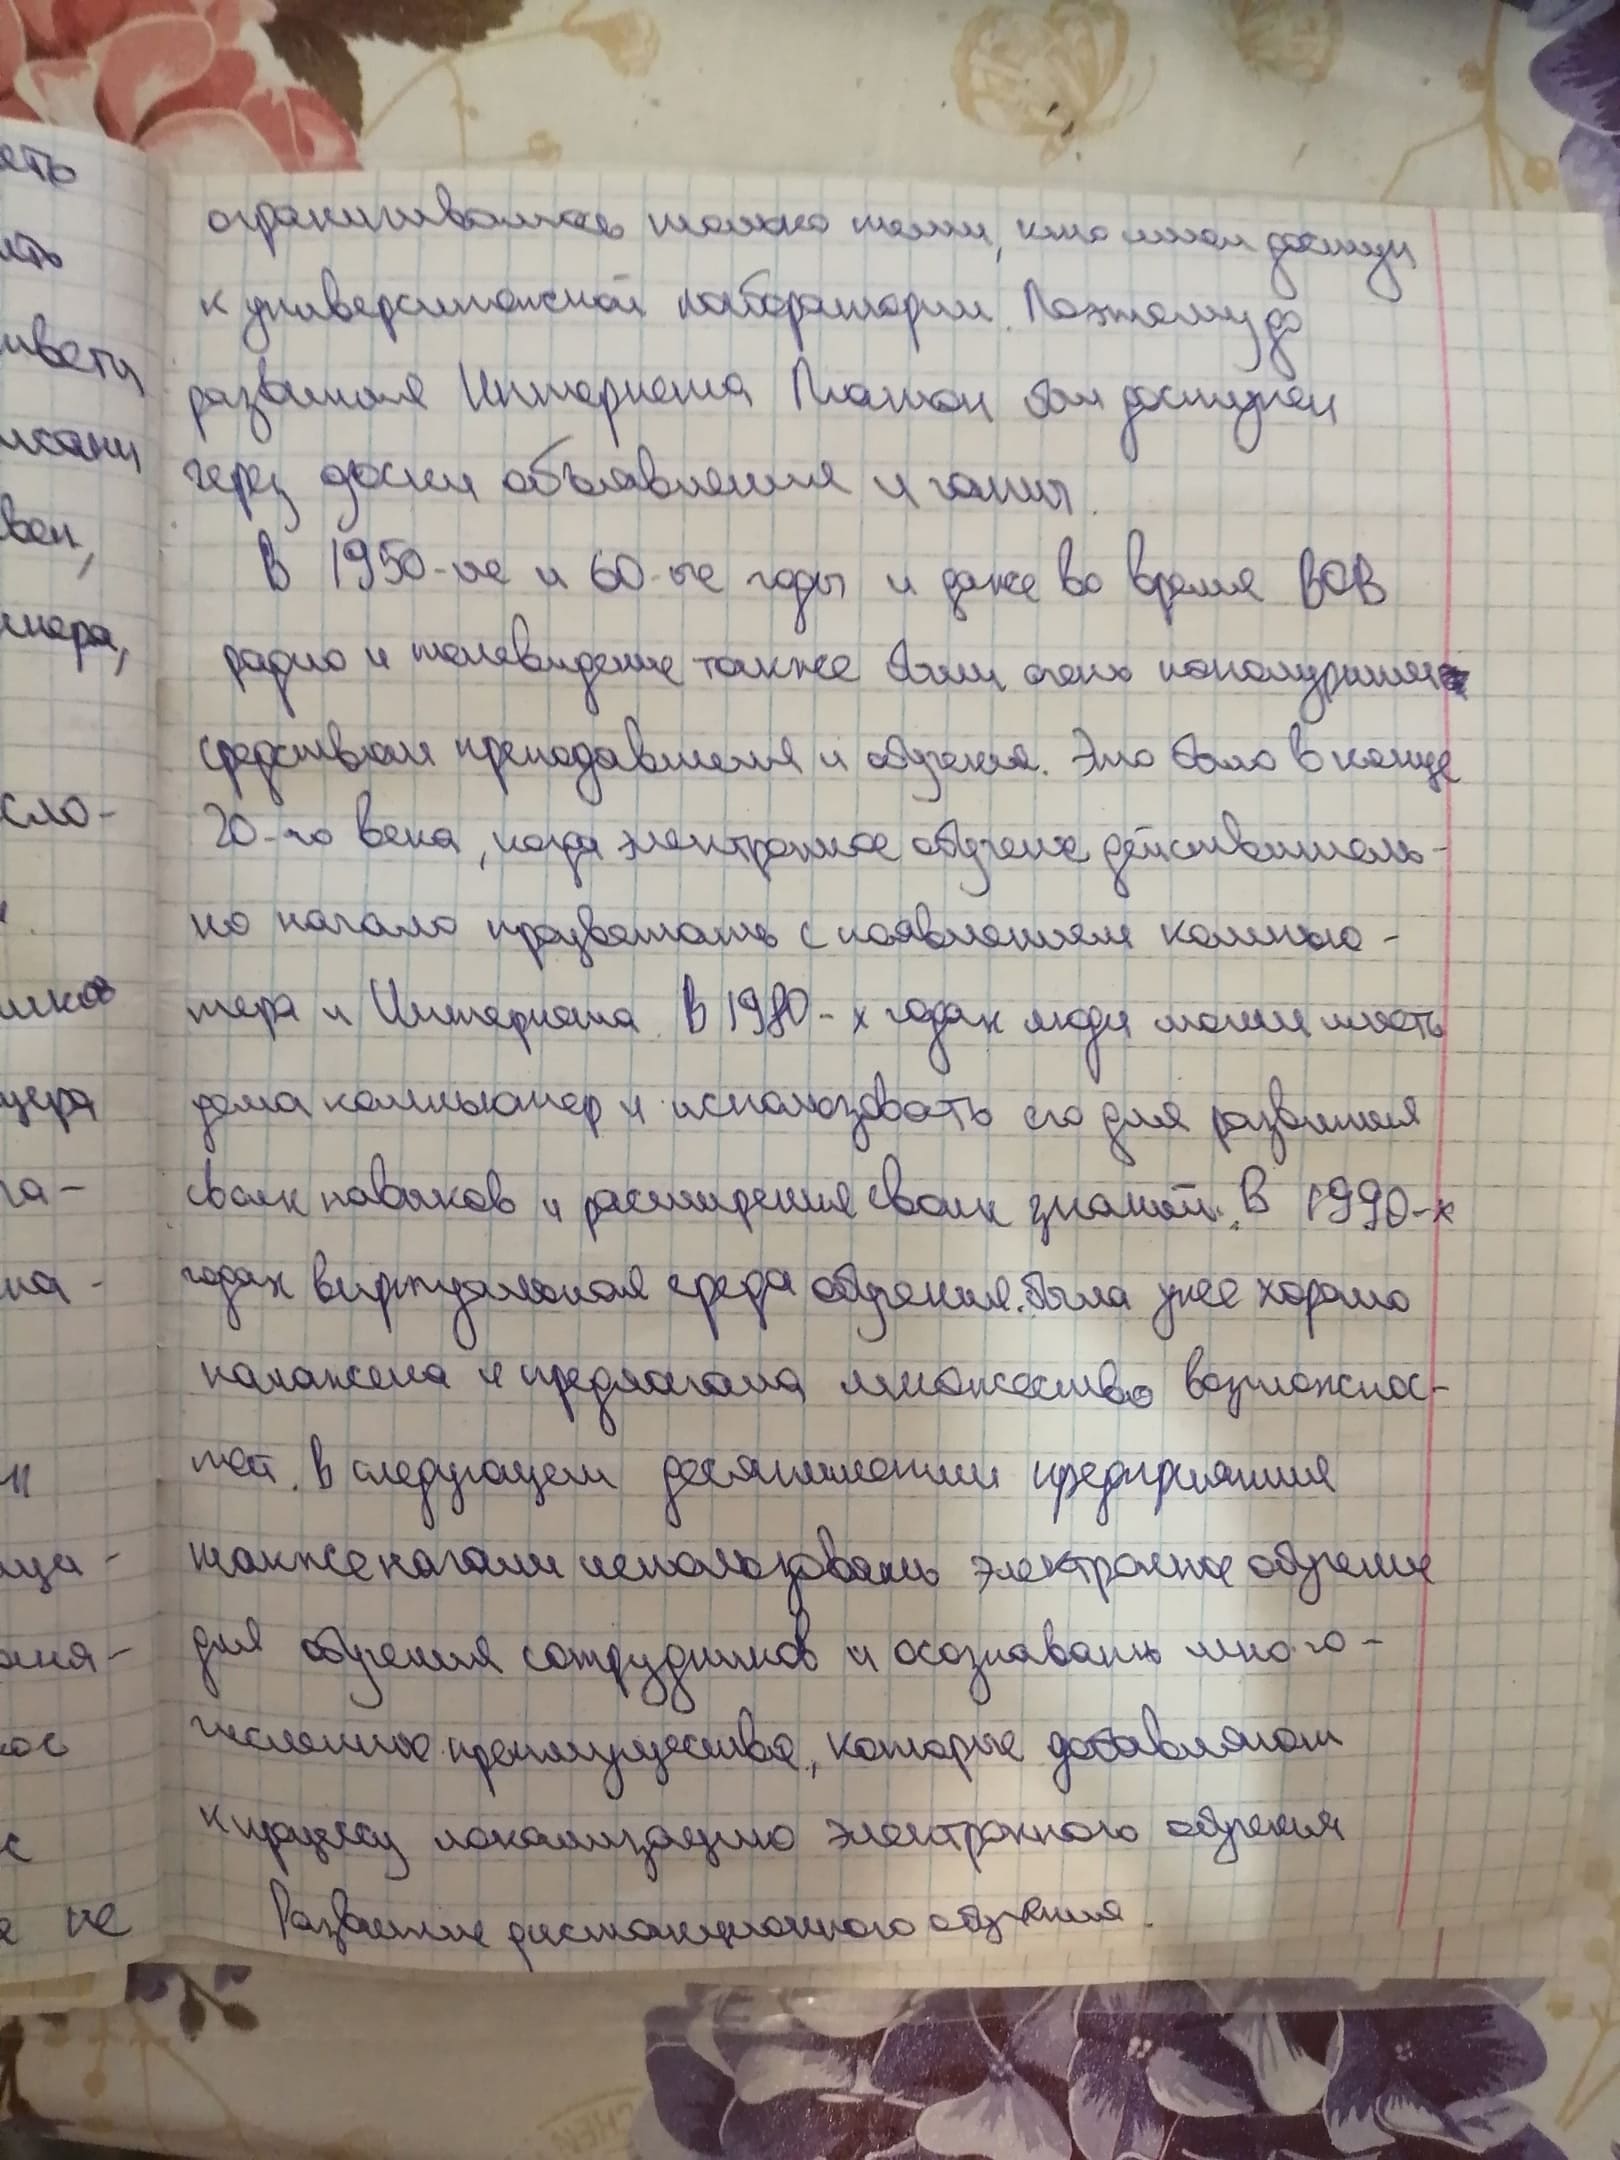 ограничивалось только теми, кто имел доступ
к университетской лаборатории. Поэтому до
развития Интернета Платон был доступен
через доски объявления и чаты.
В 1950-ые и 60-ые годы и даже во время ВОВ
радио и телевидение также были очень популярными
средством преподавания и обучения. Это было в конце
20-го века, когда электронное обучение действитель-
но начало процветать с появлением компью-
тера и Интернета. В 1980-х годах люди могли иметь
дома компьютер и использовать его для развития
своих навыков и расширения своих знаний. В 1990-х
годах виртуальная среда обучения была уже хорошо
налажена и предлагала множество возможнос-
тей. В следующем десятилетии предприятия
также начали использовать электронное обучение
для обучения сотрудников и осознавать много-
численные преимущества, которые добавляют
к процессу локализацию электронного обучения
Развитие дистанционного обучения.